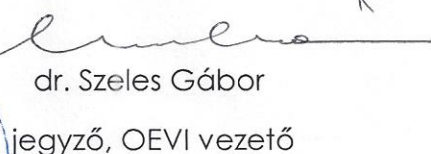 dr. Szeles Gábor
jegyző, OEVI vezető